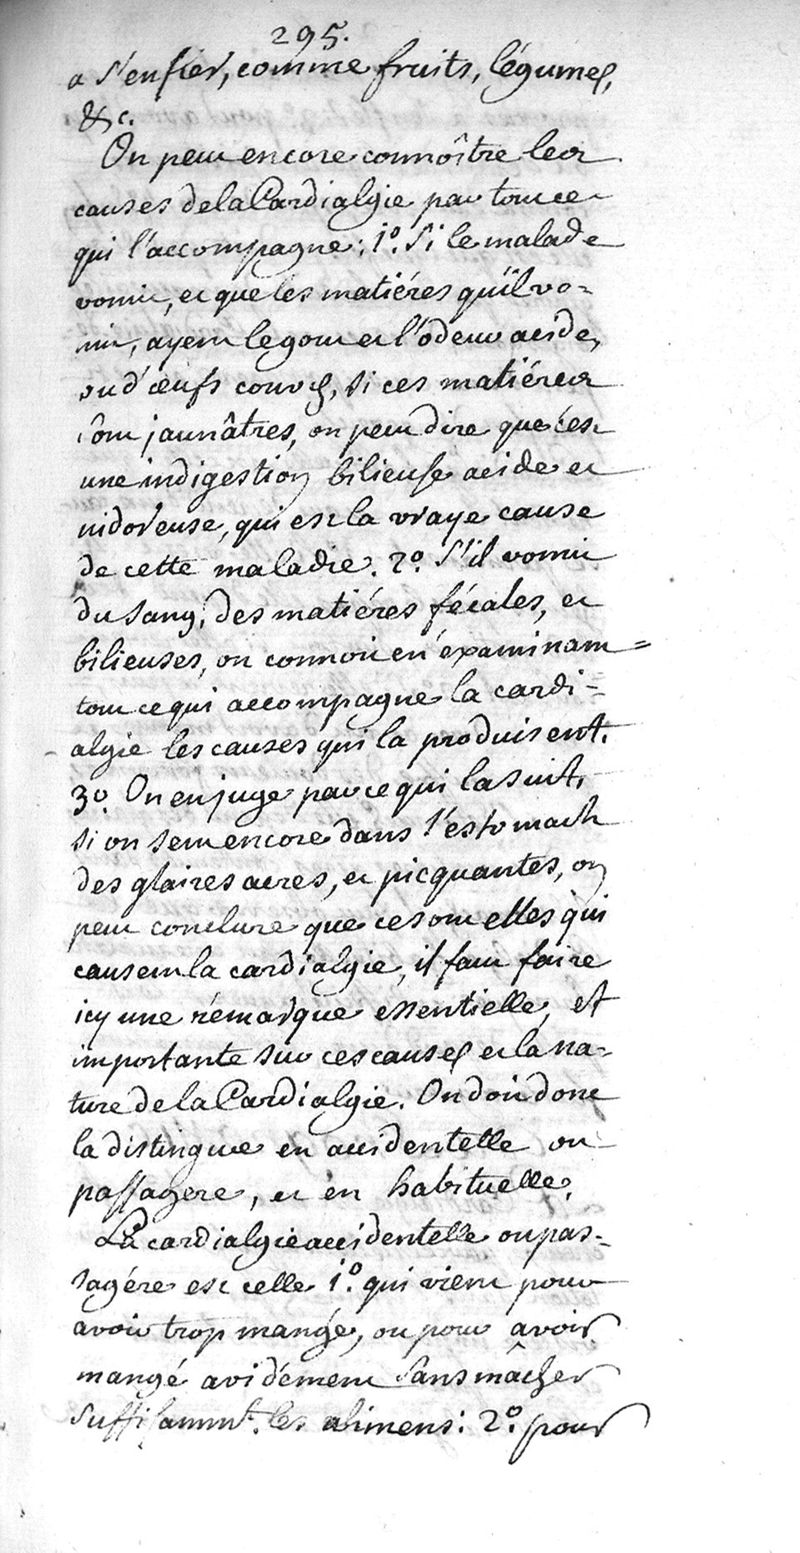 295.
a s'enfler, comme fruits, légumes,
&c.
On peut encore connoître les
causes de la Cardialgie par tout ce
qui l'accompagne: 1º. Si le malade
vomit, et que les matiéres qu'il vo=
mit, ayent le gout et l'odeur acide,
ou d'œufs couvés, si ces matiéres
sont jaunâtres, on peut dire que c'est
une indigestion bilieuse acide et
nidoreuse, qui est la vraye cause
de cette maladie. 2º. S'il vomit
du sang, des matiéres fécales, et
bilieuses, on connoit en éxaminant=
tout ce qui accompagne la cardi=
algie les causes qui la produisent.
3º. On en juge par ce qui la suit,
si on sent encore dans l'estomach
des glaires acres, et picquantes, on
peut conclure que ce sont elles qui
causent la cardialgie, il faut faire
icy une rémarque essentielle, et
importante sur ces causes et la na=
ture de la Cardialgie. On doit donc
la distinguer en accidentelle ou
passagere, et en habituelle.
La cardialgie accidentelle ou pas=
sagére est celle 1º. qui vient pour
avoir trop mangé, ou pour avoir
mangé avidément sans mâcher
suffisamnt. les alimens: 2º. pour